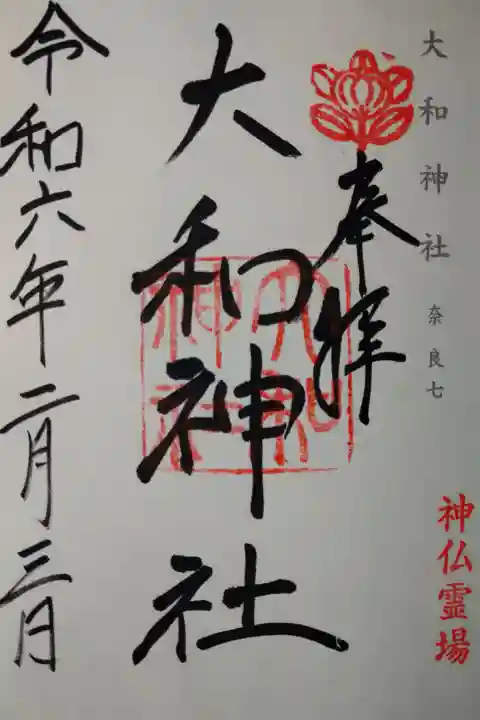 大和神社 奈良七
神仏霊場
奉拝
大和神社
大和神社
令和六年二月三日